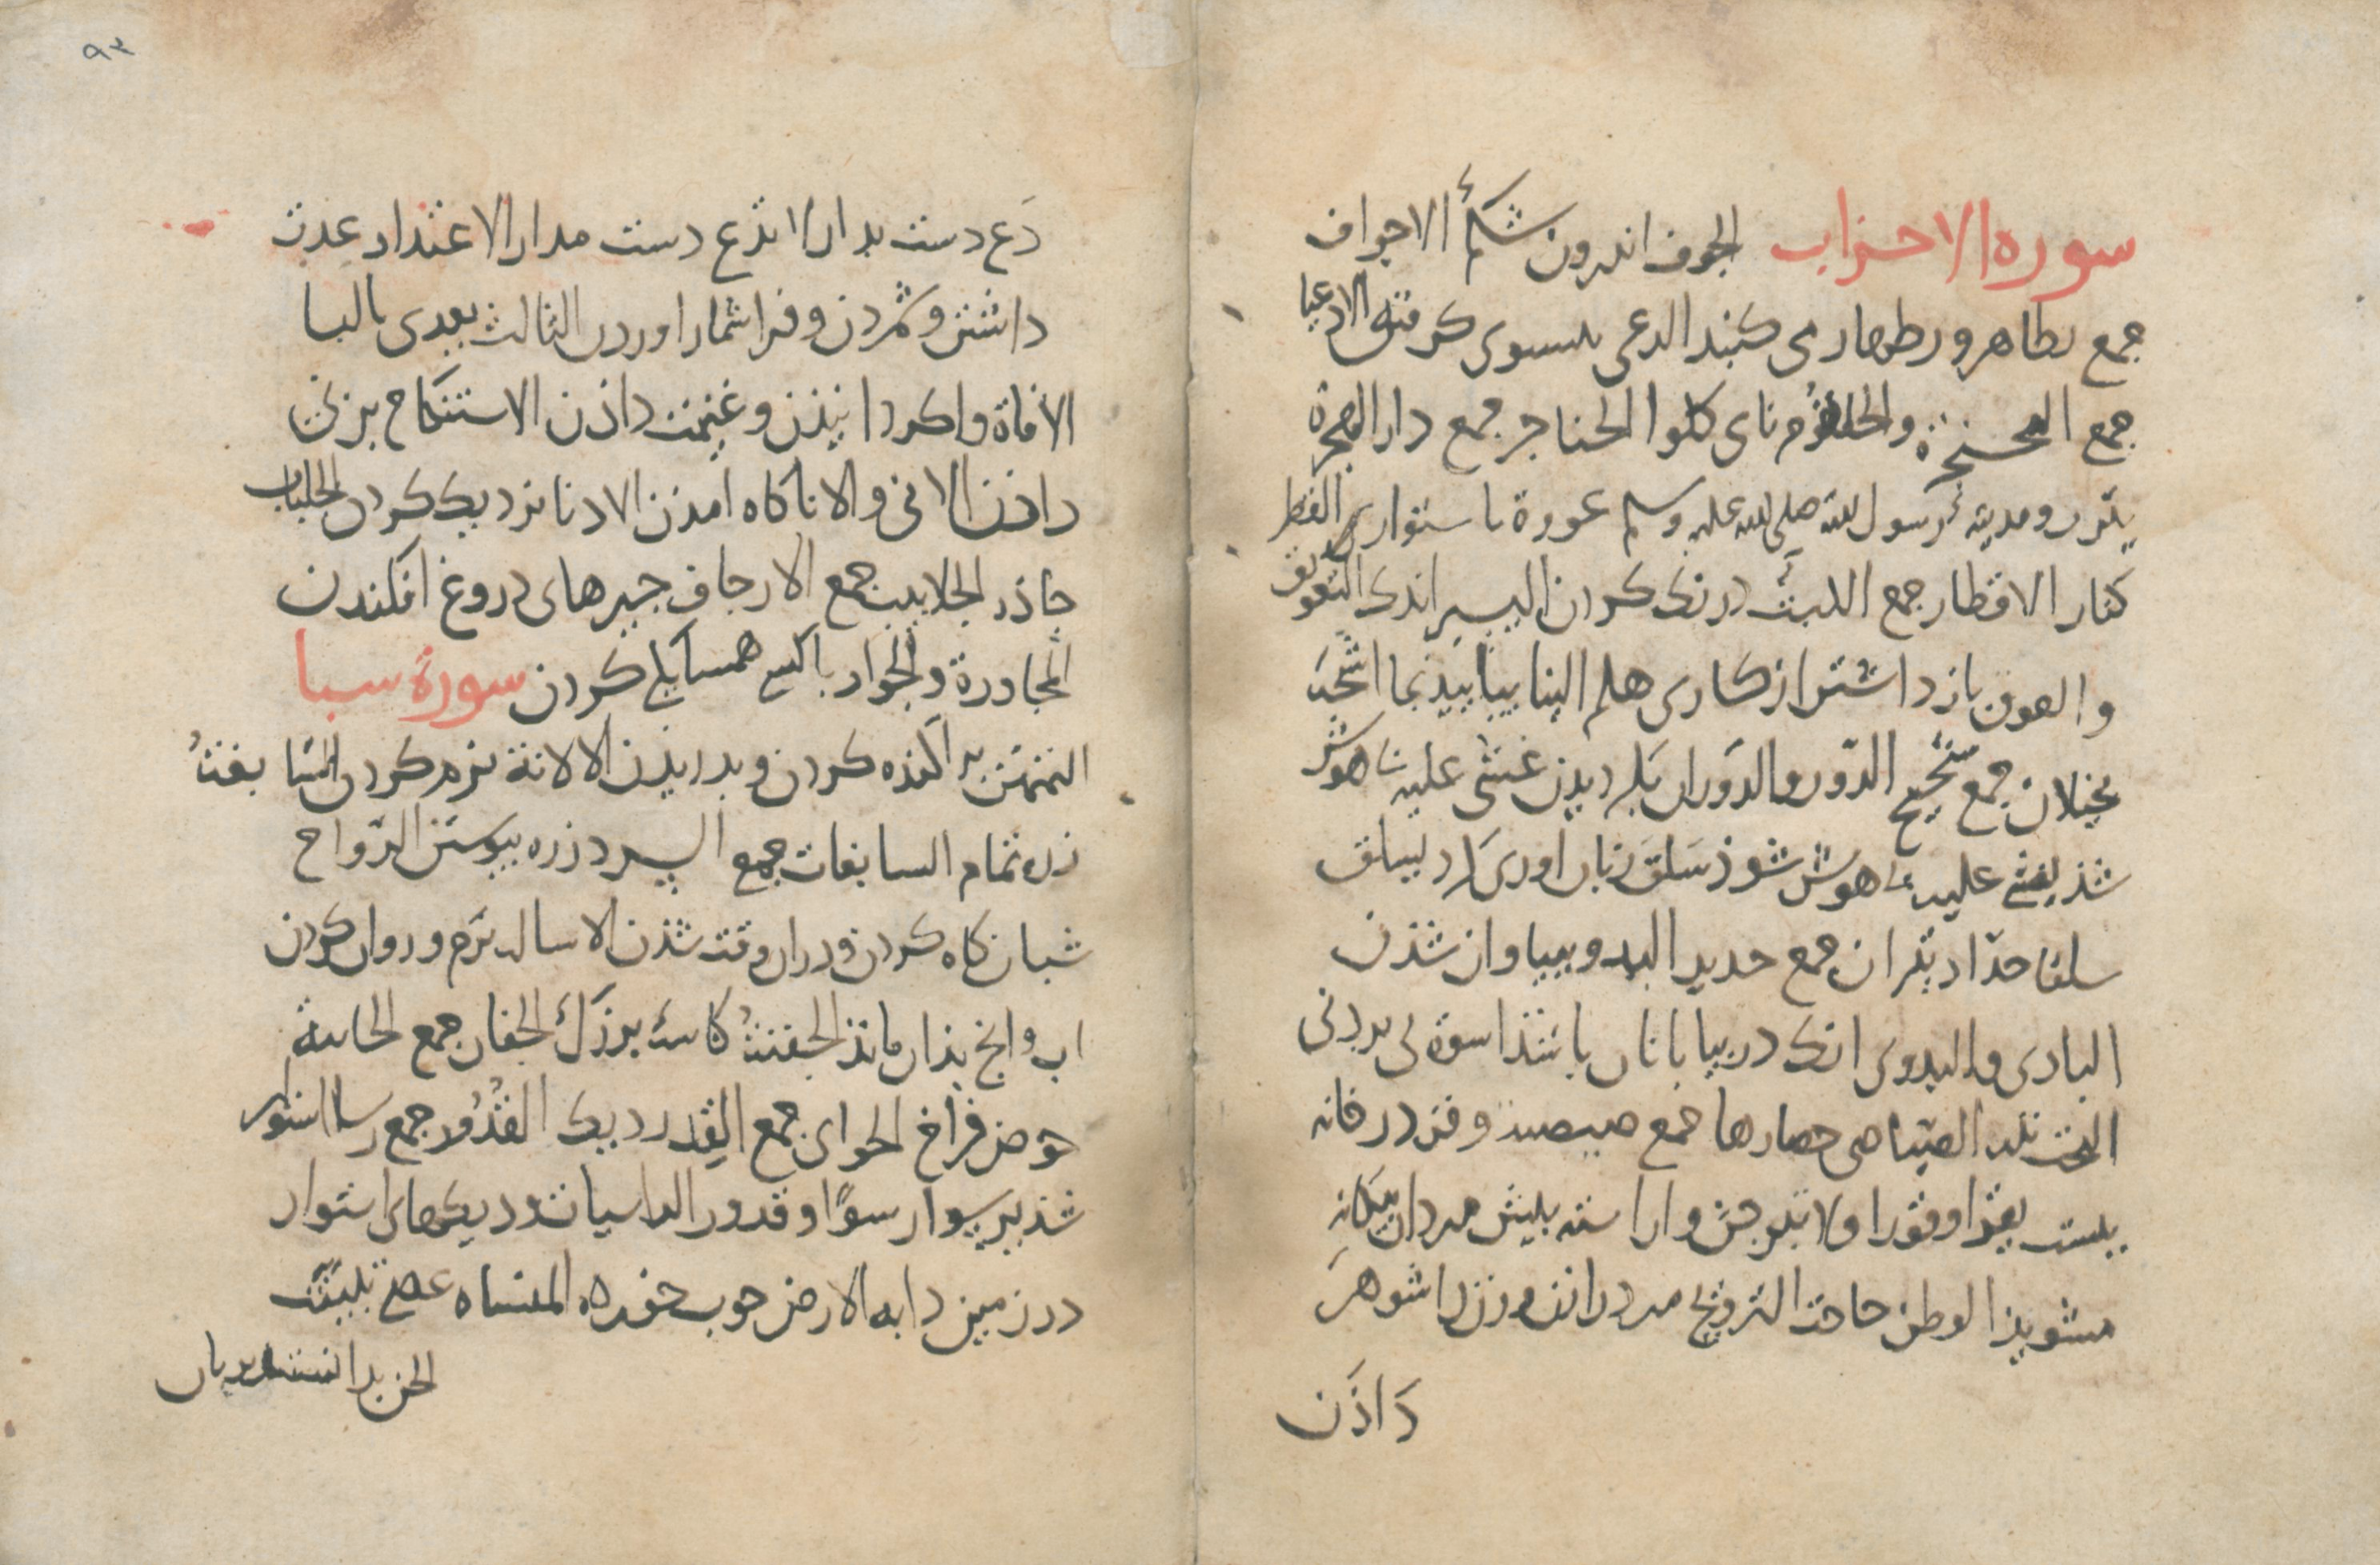 سوره الاحزاب الجوف اندرون شکم الاجواف
جمع تظاهرون ظهار می کنند الدعی پسوی کرفته الادعیا
جمع الحنجرة والحلقوم نای کلوا الحناجر جمع دار الهجرة
یثرب ومدینه رسول الله صلی الله علیه وسلم عورة نا ستواری القطر
کنار الاقطار جمع اللبث درنک کردن الیسیر اندک التعویق
والعوق باز داشتن از کاری هلم الینا بیایید بما اشحة
بخیلان جمع شحیح الدور والدوران بکردیدن غشی علیه بی هوش
شذ یغشی علیه بی هوش شوذ سلق زبان اوری کرد یسلق
سلقا حداد تیزان جمع حدید البدو ببیاوان شذن
البادی والبدوی انک در بیابانان باشند اسوة پی بردنی
النحب نذر الصیاصی حصارها جمع صیصیه وقرن در خانه
بیست یقر وقورا ولا تبرجن واراسته پیش مردان بیکانه
مشویذ الوطر حاجت التزویج مرد را زن وزن را شوهر
داذن
٩٣
دع دست بدار لا تدع دست مدار الاعتداد عدت
داشتن وشمردن وفرا شمار اوردن الثالث یعدی بالبا
الافاة وا کردانیذن وغنیمت داذن الاستنکاح بزنی
داذن الانی والانا کاه امذن الادنا نزدیک کردن الجلباب
چاذر الجلابیب جمع الارجاف خبرهای دروغ افکندن
المجاورة والجوار باکسی همسایکی کردن سورة سبا
التمزیق پراکنده کردن وبدریذن الالانة نرم کردن السابغة
زره تمام السابغات جمع السرد زره پیوستن الرواح
شبانکاه کردن ودران وقت شذن الاسالة نرم وروان کردن
اب وانچ بذان ماند الجفنة کاسه بزرک الجفان جمع الجابیة
حوض فراخ الجوابی جمع القدر دیک القدور جمع رسا استوار
شذ یرسوا رسوا وقدور الراسیات ودیکهای استوار
در زمین دابه الارض چوب خوره المنساه عصی تبینت
الجن بدانستند پریان